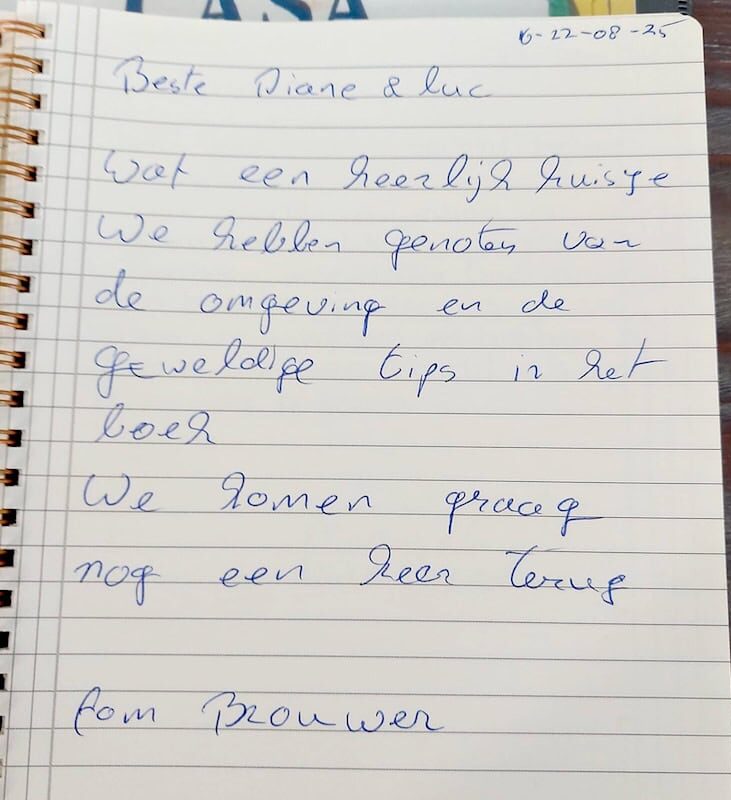 CASA
6-22-08-25
Beste Diane & luc
Wat een heerlijk huisje
We hebben genoten van
de omgeving en de
geweldige tips in het
boek
We komen graag
nog een keer terug
fam Brouwer